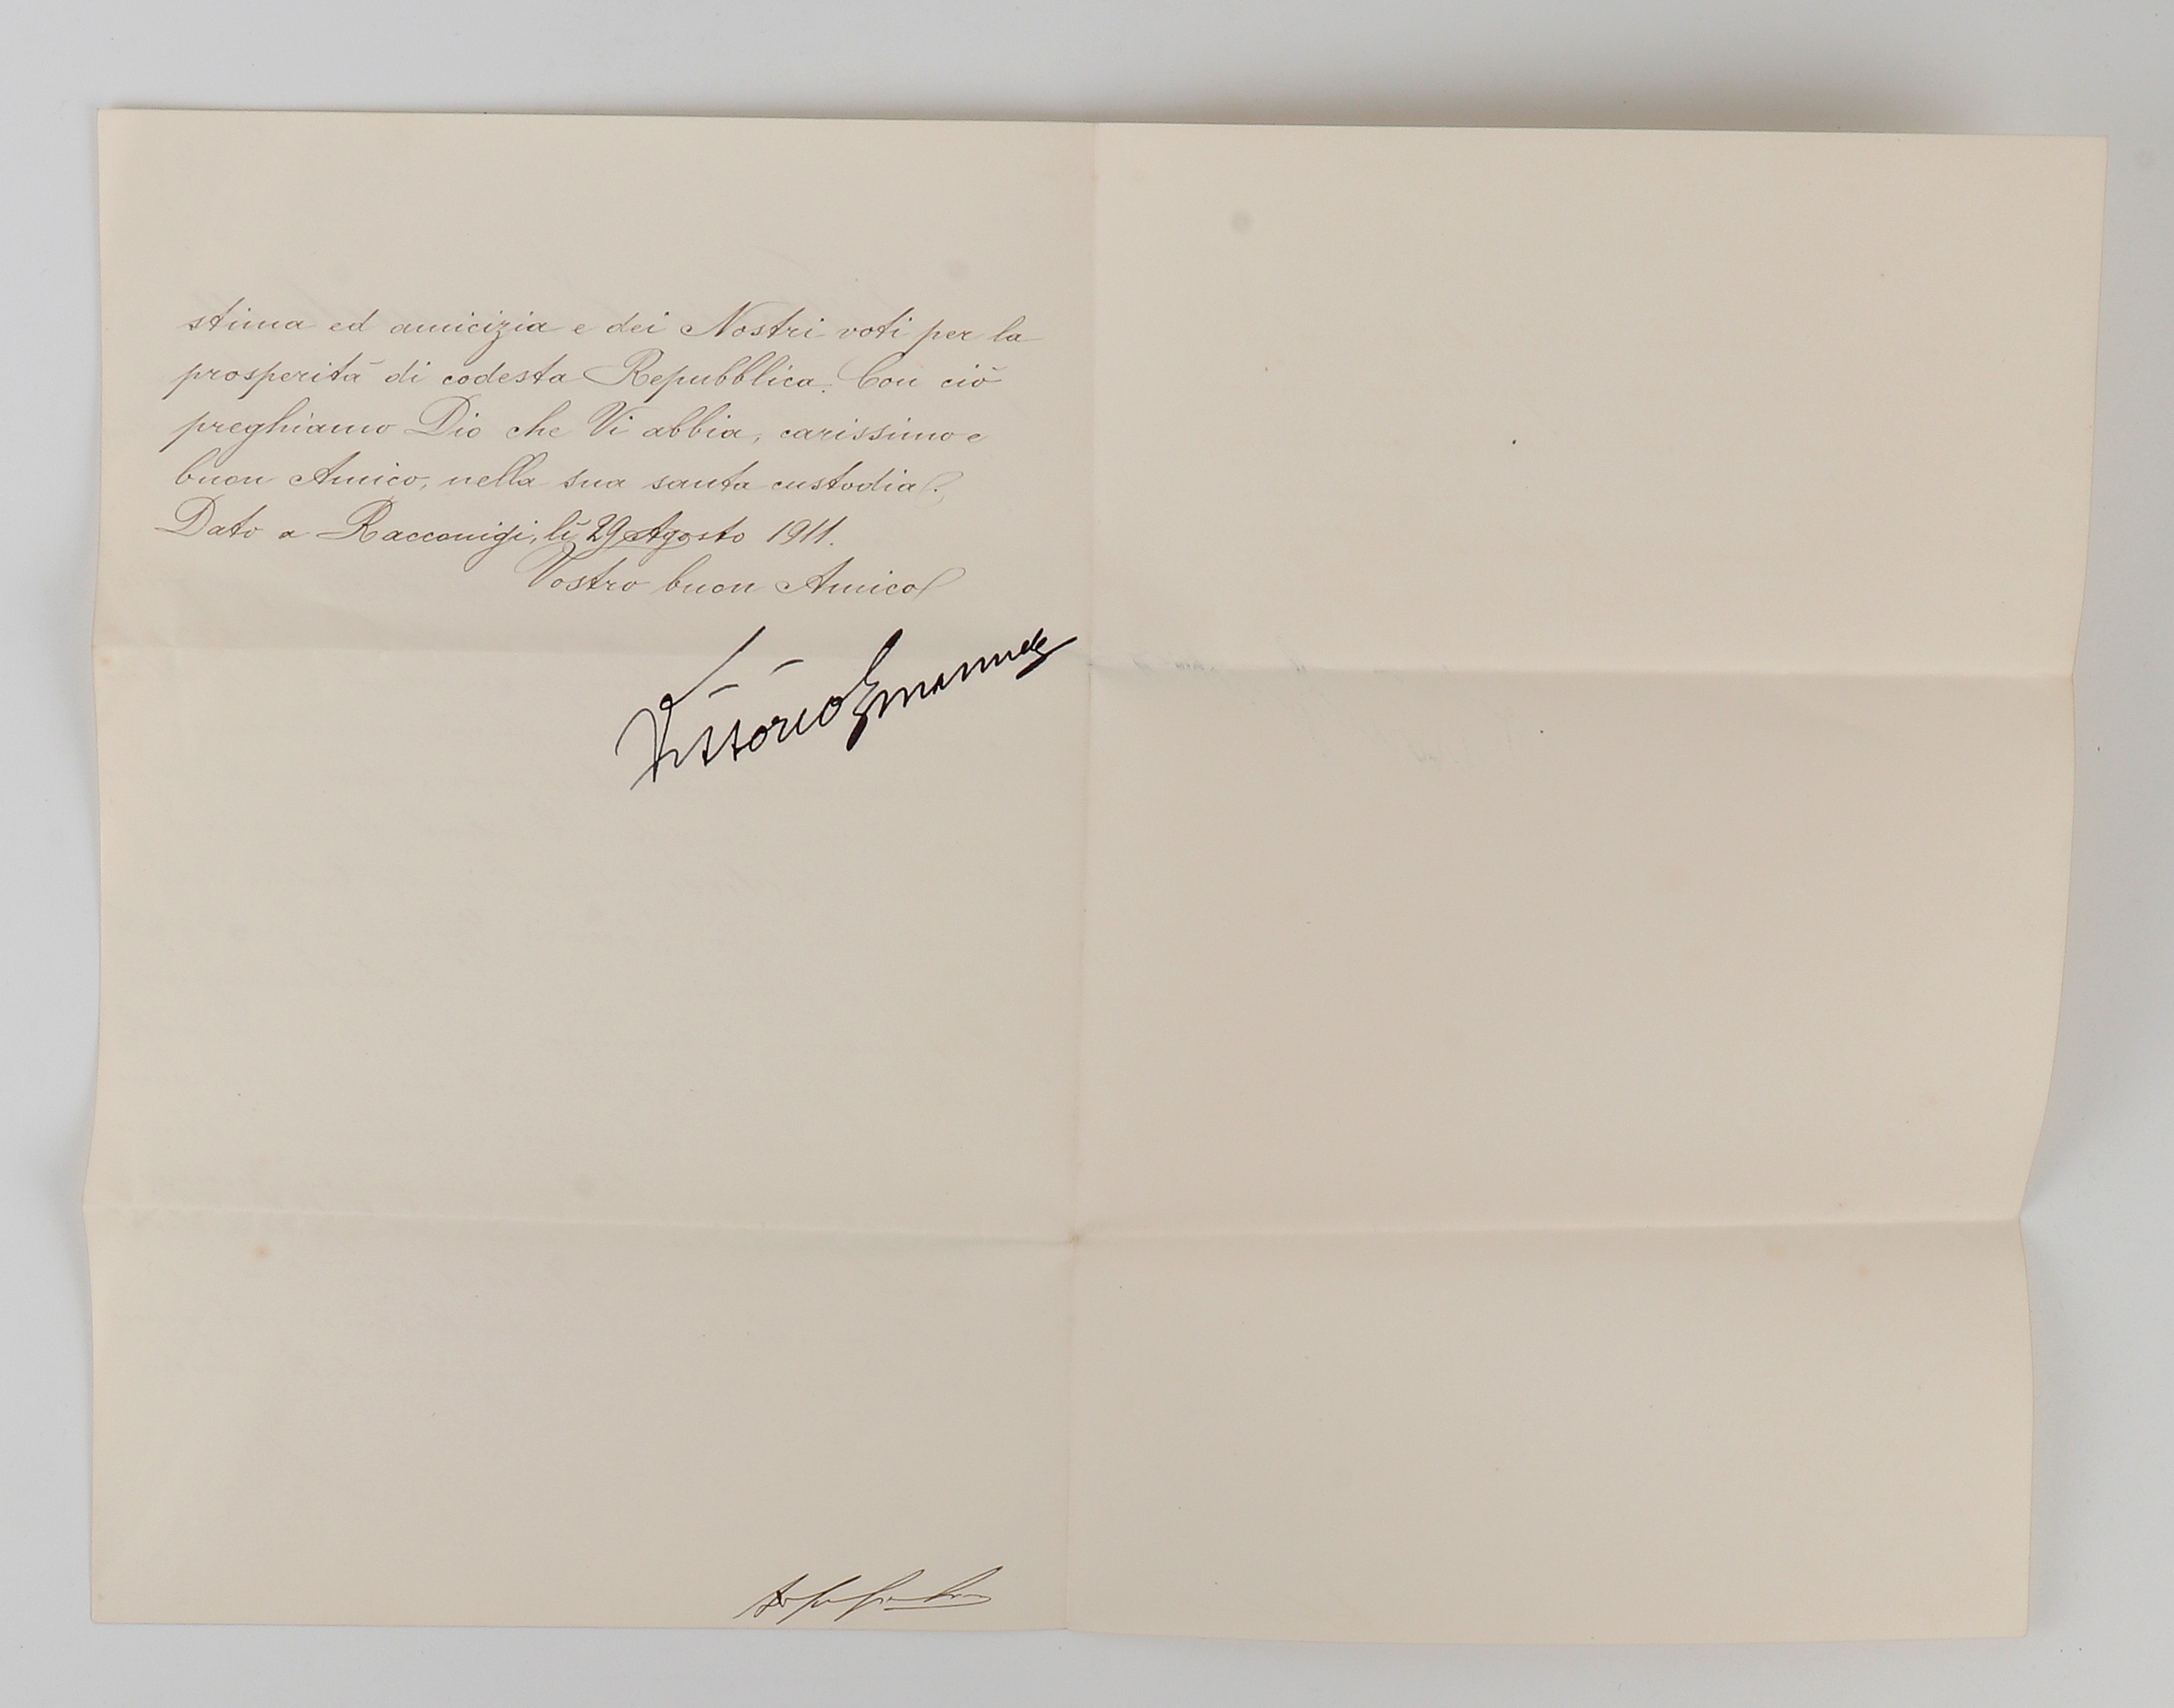 stima ed amicizia e dei Nostri voti per la
prosperità di codesta Repubblica. Con ciò
preghiamo Dio che Vi abbia, carissimo e
buon Amico, nella sua santa custodia.
Dato a Racconigi, lì 29 Agosto 1911.
Vostro buon Amico
Vittorio Emanuele